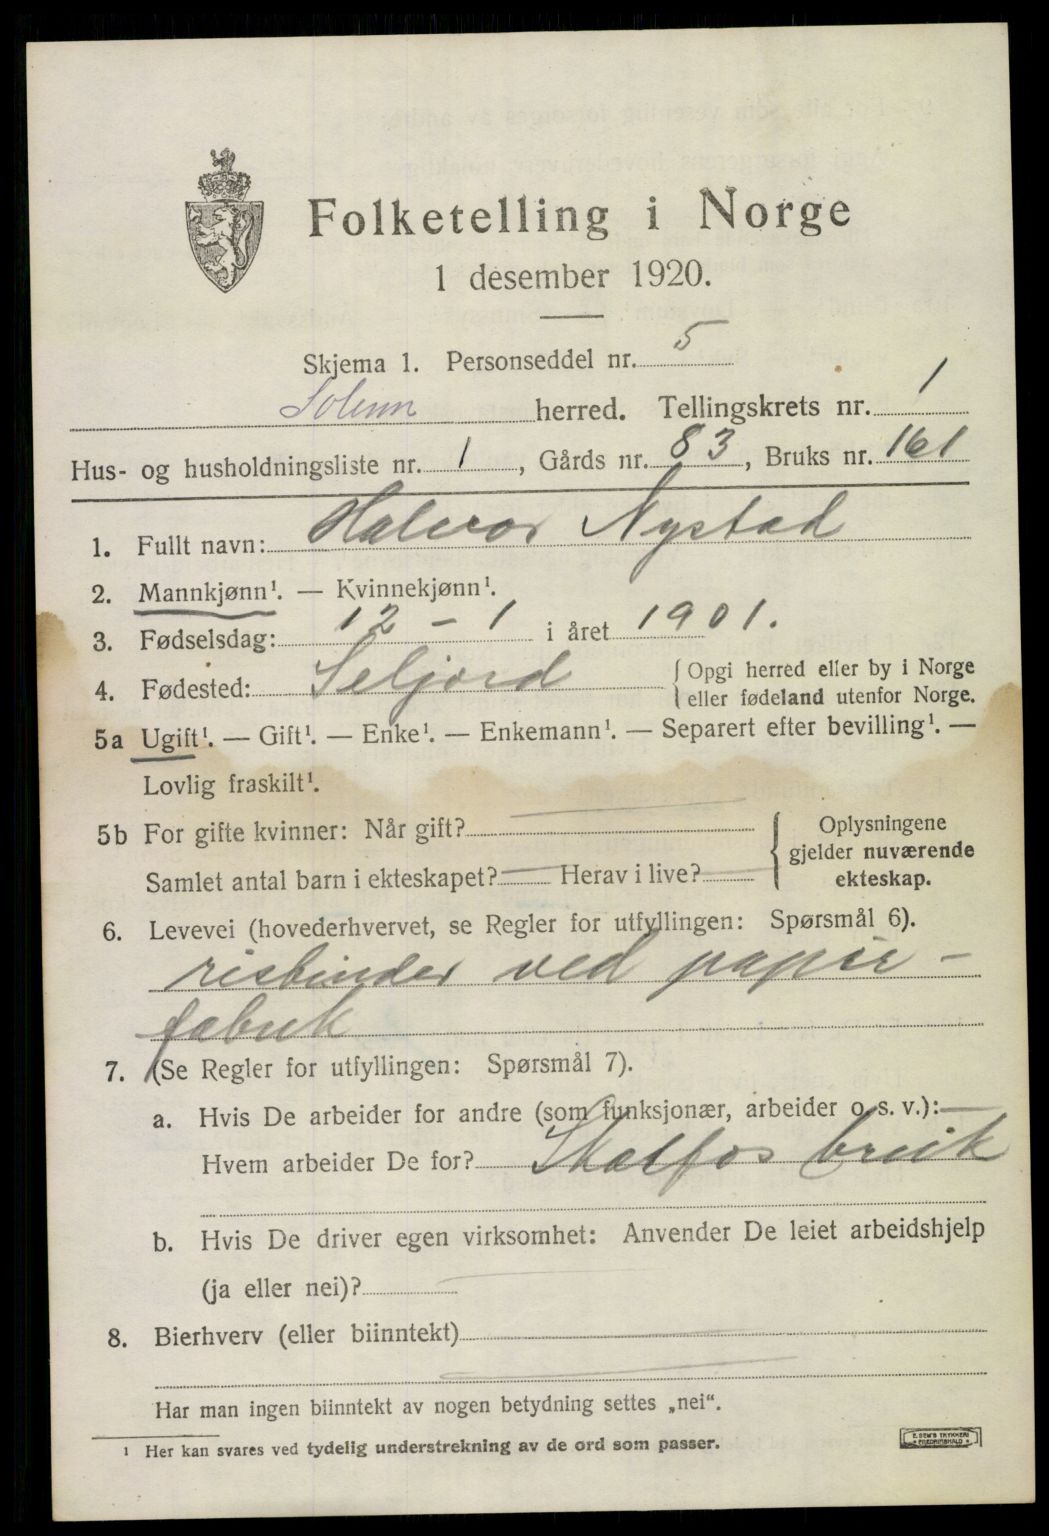 Folketelling i Norge
1 desember 1920.
Skjema 1. Personseddel nr. 5
Solum herred. Tellingskrets nr. 1
Hus- og husholdningsliste nr. 1, Gårds nr. 83, Bruks nr. 161
1. Fullt navn: Halvor Nystad
2. Mannkjønn¹. — Kvinnekjønn¹.
3. Fødselsdag: 12 - 1 i året 1901.
4. Fødested: Seljord { Opgi herred eller by i Norge
eller fødeland utenfor Norge.
5a Ugift¹. — Gift¹. — Enke¹. — Enkemann¹. — Separert efter bevilling¹. —
Lovlig fraskilt¹.
5b For gifte kvinner: Når gift?
Samlet antal barn i ekteskapet? Herav i live?
{ Oplysningene
gjelder nuværende
ekteskap.
6. Levevei (hovederhvervet, se Regler for utfyllingen: Spørsmål 6).
risbinder ved papir-
fabrik
7. (Se Regler for utfyllingen: Spørsmål 7).
a. Hvis De arbeider for andre (som funksjonær, arbeider o. s. v.):
Hvem arbeider De for? Skotfos bruk
b. Hvis De driver egen virksomhet: Anvender De leiet arbeidshjelp
(ja eller nei)?
8. Bierhverv (eller biinntekt)
Har man ingen biinntekt av nogen betydning settes „nei“.
¹ Her kan svares ved tydelig understrekning av de ord som passer.